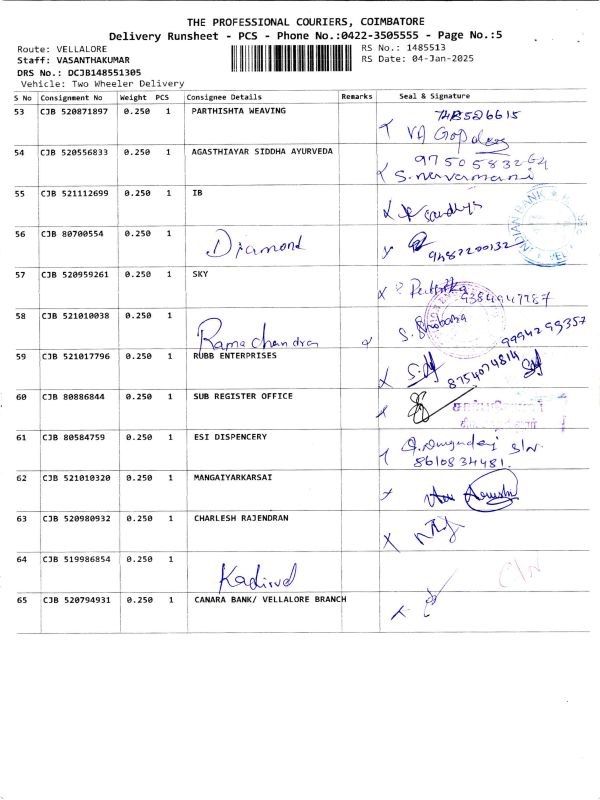 THE PROFESSIONAL COURIERS, COIMBATORE
Delivery Runsheet - PCS - Phone No.:0422-3505555 - Page No.:5
Route: VELLALORE RS No.: 1485513
Staff: VASANTHAKUMAR RS Date: 04-Jan-2025
DRS No.: DCJB148551305
Vehicle: Two Wheeler Delivery
S No Consignment No Weight PCS Consignee Details Remarks Seal & Signature
53 CJB 520871897 0.250 1 PARTHISHTA WEAVING
VA Gopal
54 CJB 520556833 0.250 1 AGASTHIAYAR SIDDHA AYURVEDA 9750583264
S. navamani
55 CJB 521112699 0.250 1 IB Sandhya
INDIAN BANK
56 CJB 80700554 0.250 1 Diamond 9482200132
57 CJB 520959261 0.250 1 SKY 9384947787
58 CJB 521010038 0.250 1 Ramachandran S. Shobana 9994299357
59 CJB 521017796 0.250 1 RUBB ENTERPRISES 8754074814
60 CJB 80886844 0.250 1 SUB REGISTER OFFICE
61 CJB 80584759 0.250 1 ESI DISPENCERY S/N
8610834481.
62 CJB 521010320 0.250 1 MANGAIYARKARSAI
63 CJB 520980932 0.250 1 CHARLESH RAJENDRAN
64 CJB 519986854 0.250 1 C/N
65 CJB 520794931 0.250 1 CANARA BANK/ VELLALORE BRANCH